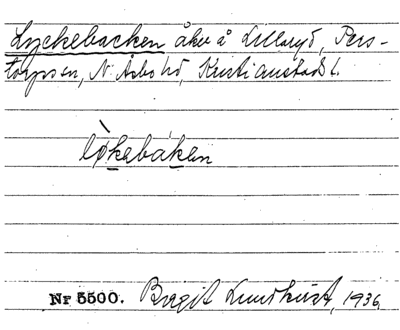 Lyckebacken åker å Lillaryd, Pers-
torpssn, N. Åsbo hd, Kristianstads l.
lỳkebáken
Nr 5500. Birgit Lundkvist, 1936.